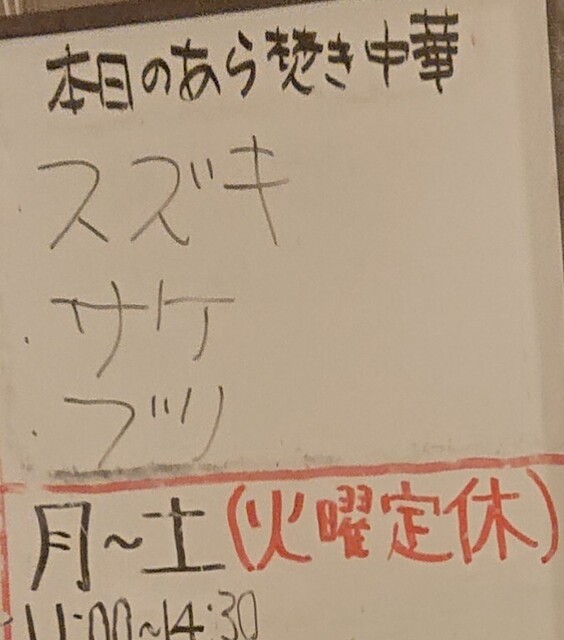 本日のあら焚き中華
スズキ
・サケ
・ブリ
月〜土(火曜定休)
11:00〜14:30